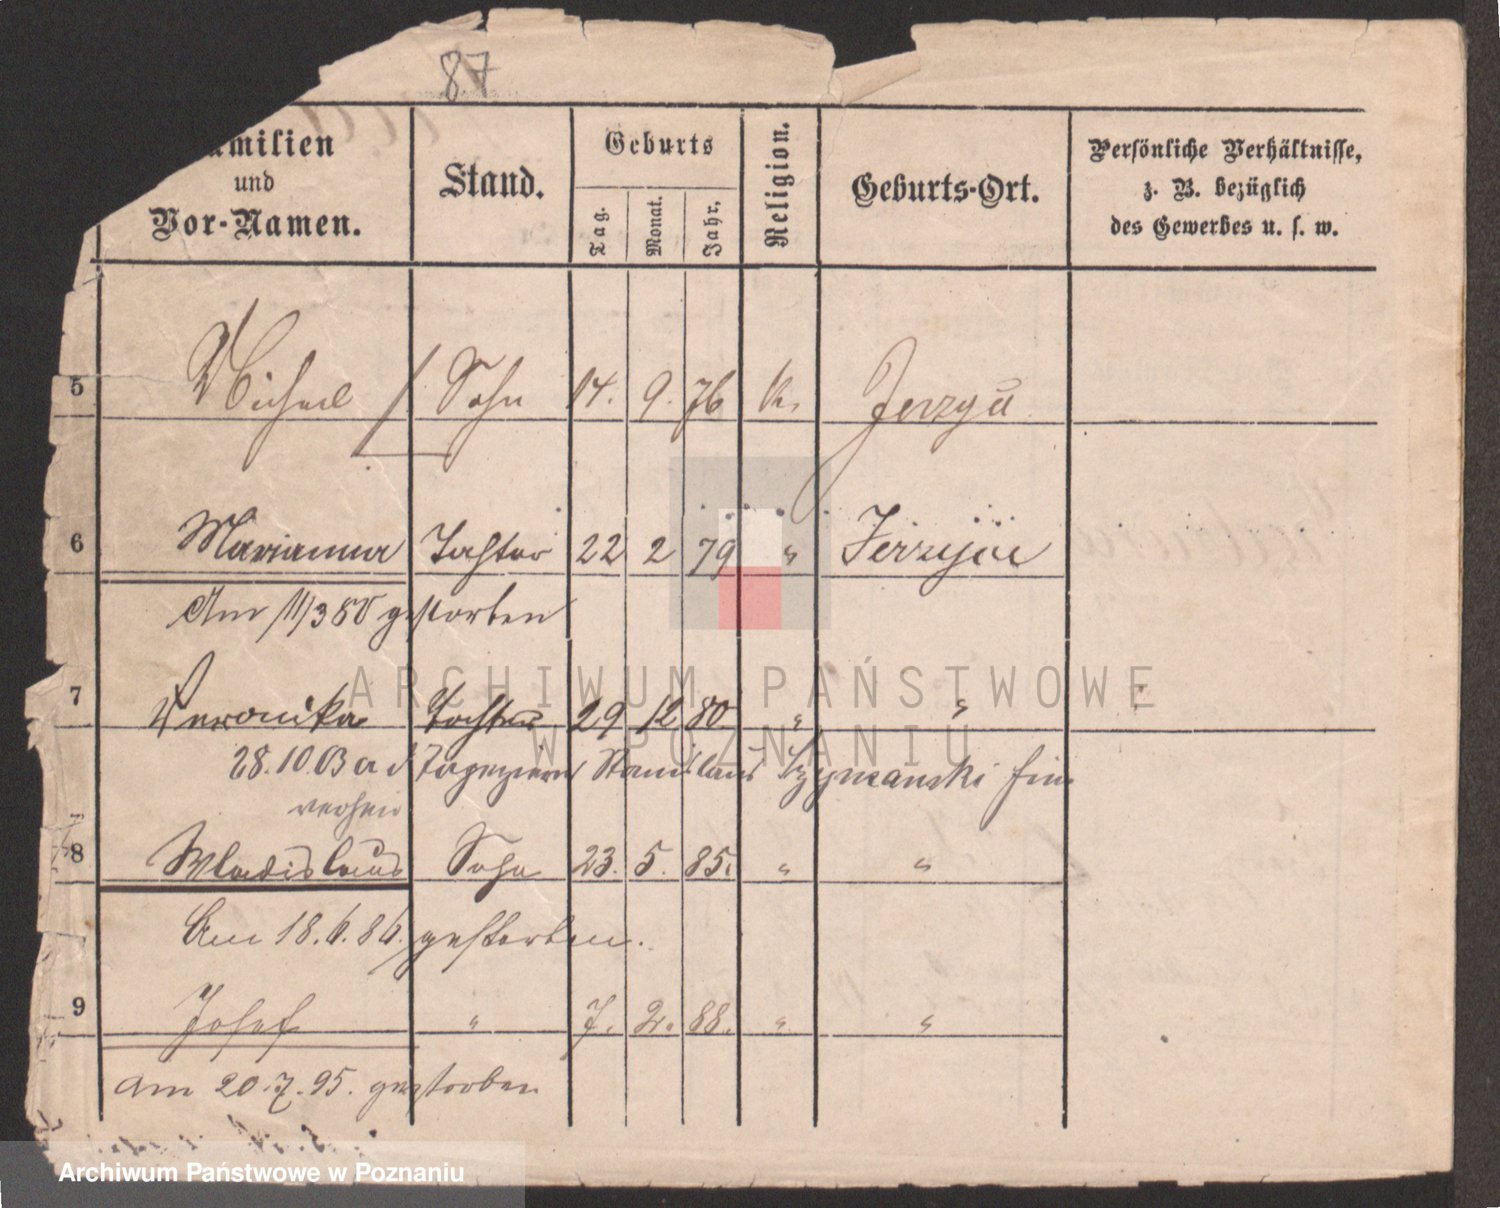 87
amilien
und
Vor-Namen.
Stand.
Geburts
Tag.
Monat.
Jahr.
Religion.
Geburts-Ort.
Persönliche Verhältnisse,
z. B. bezüglich
des Gewerbes u. s. w.
5 Michael Sohn 14. 9. 76 k.
6 Marianna Tochter 22 2 79 "
Am 11/3 80 gestorben
7 Veronika Tochter 29 12 80 " "
28.10.03 a d Tapezierer Stanislaus Szymanski hier
verheir
8 Wladislaus Sohn 23. 5. 85. " "
Am 18.6.86. gestorben.
9 Josef " 7. 2. 88. " "
am 20.7.95. gestorben
ARCHIWUM PAŃSTWOWE
W POZNANIU
Archiwum Państwowe w Poznaniu